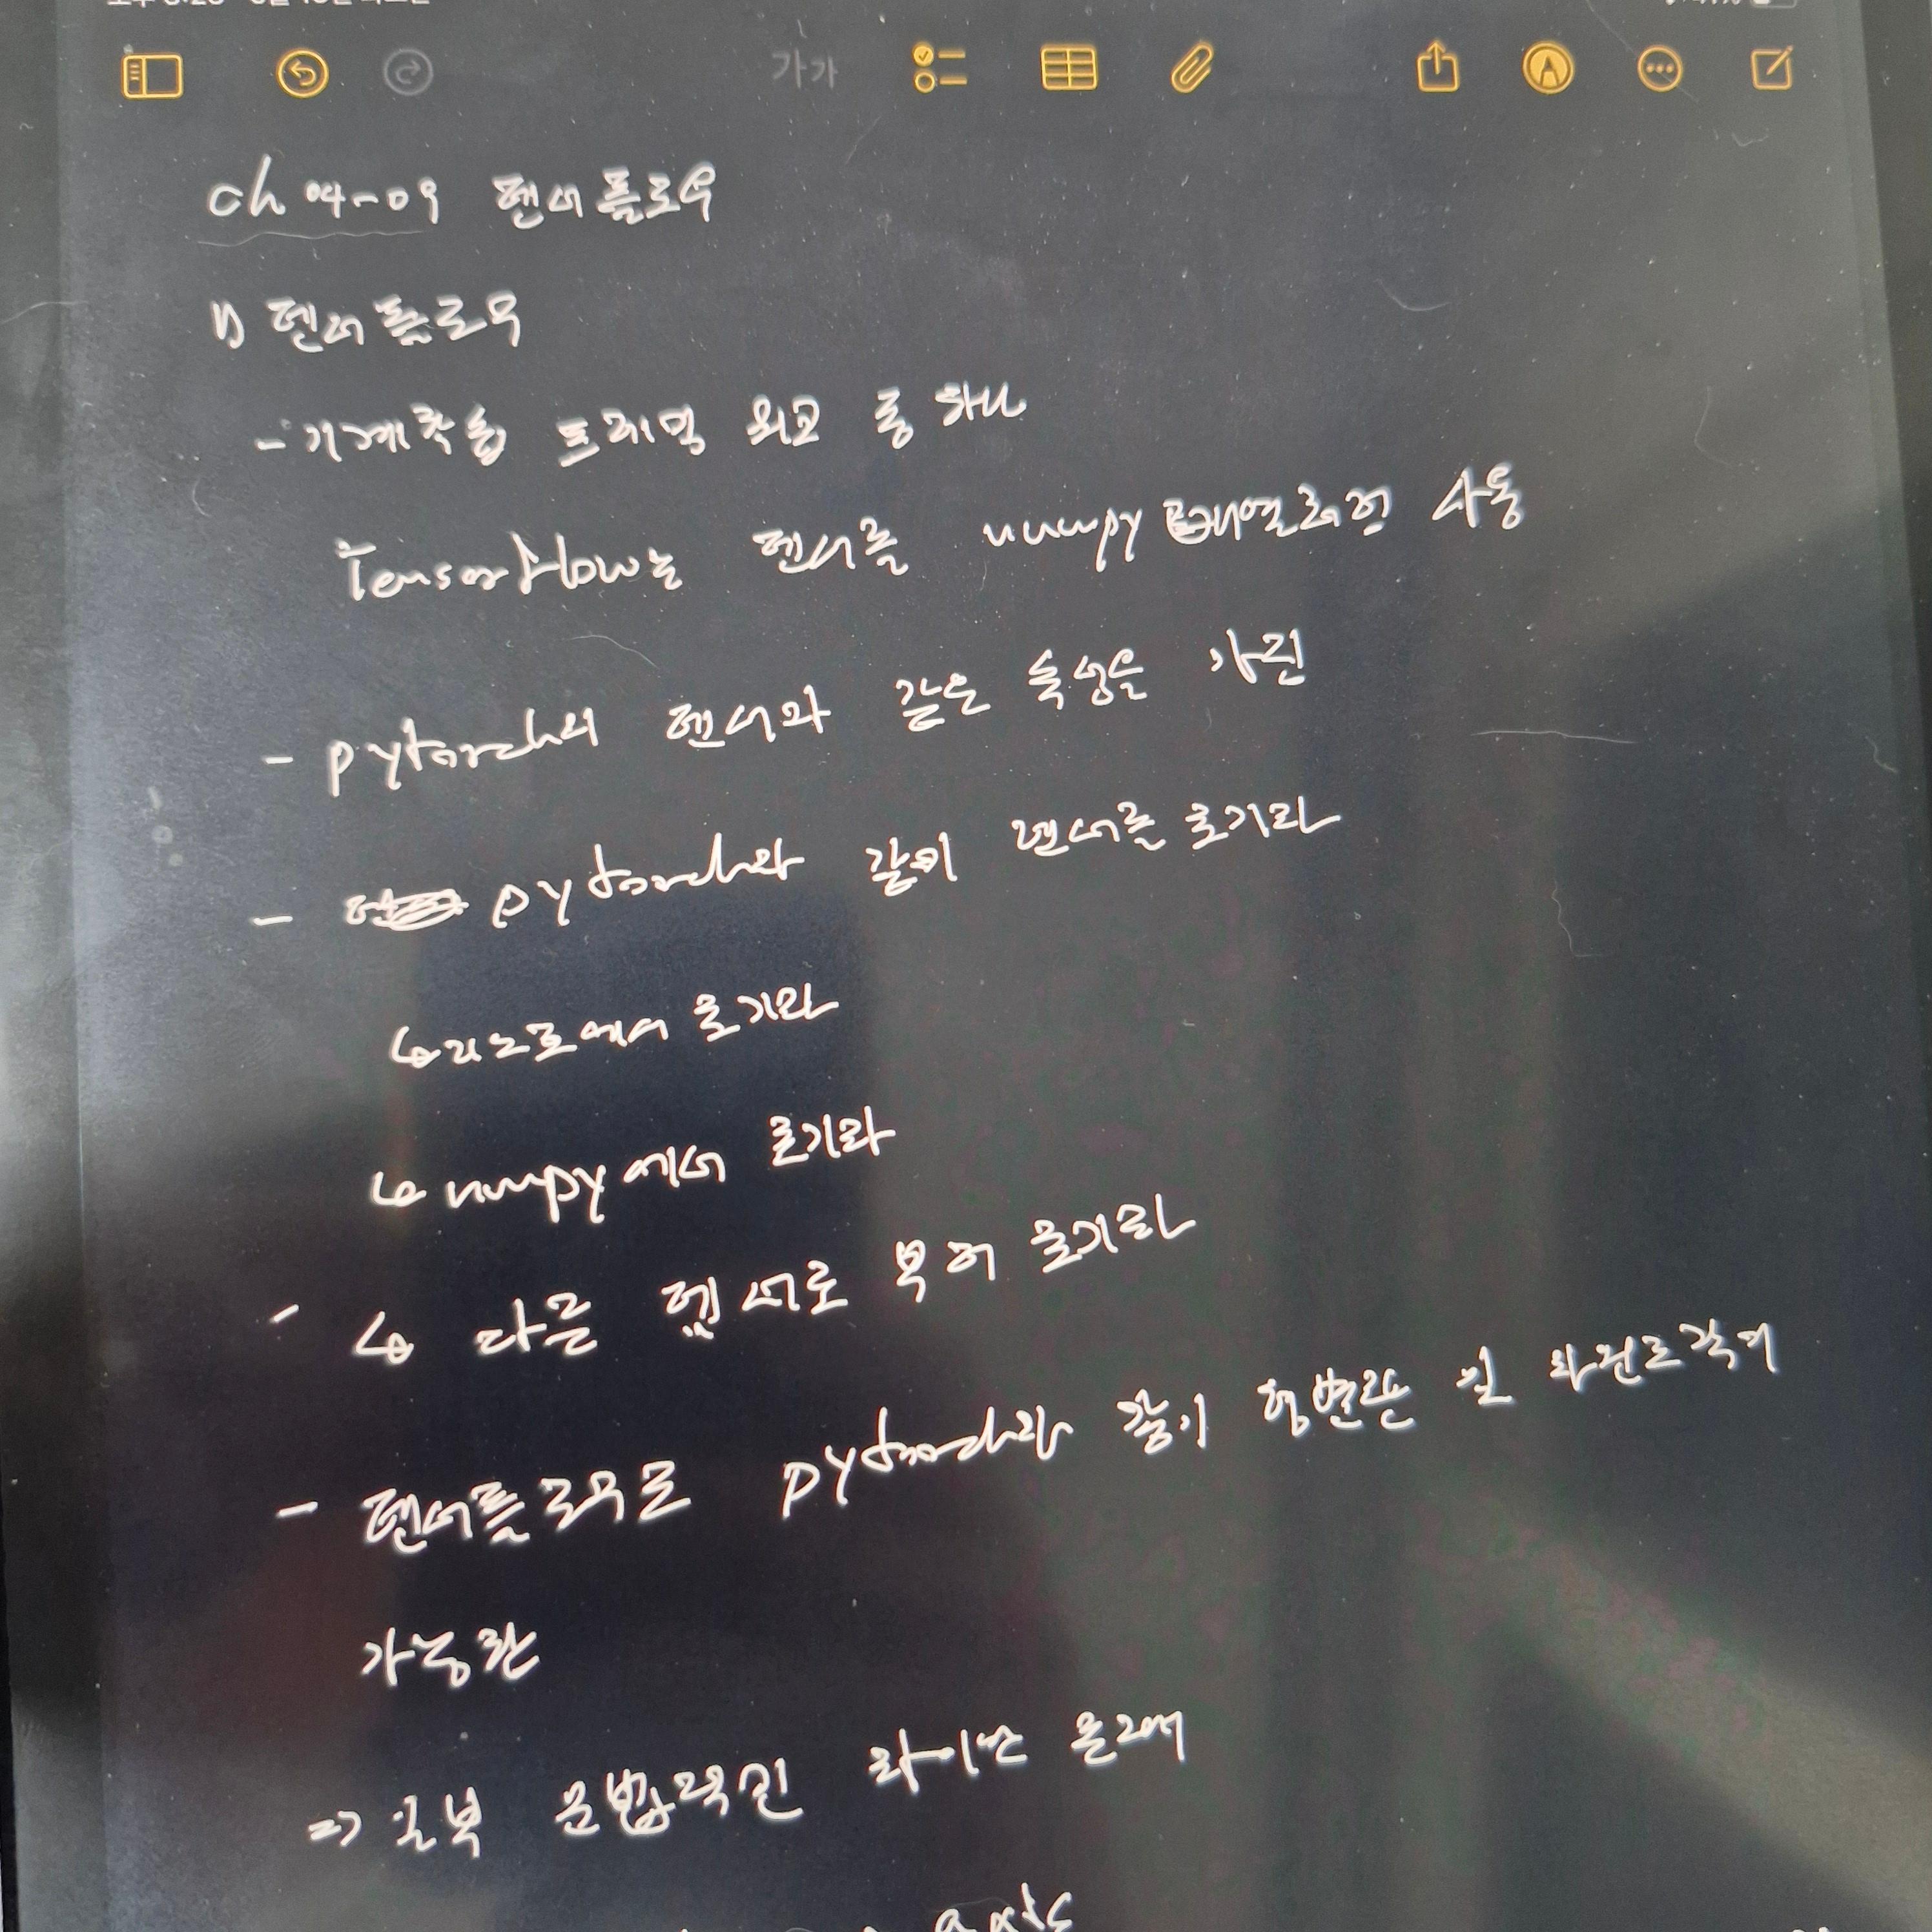 가가
ch 04-09 텐서플로우
1) 텐서플로우
- 기계학습 프레임 워크 중 하나
Tensorflow는 텐서를 numpy 배열처럼 사용
- pytorch의 텐서와 같은 특성을 가진
- pytorch와 같이 텐서를 초기화
↳ 리스트에서 초기화
↳ numpy에서 초기화
- ↳ 다른 텐서로 부터 초기화
- 텐서플로우도 pytorch와 같이 형변환 및 차원조작이
가능한
=> 일부 문법적인 차이만 존재